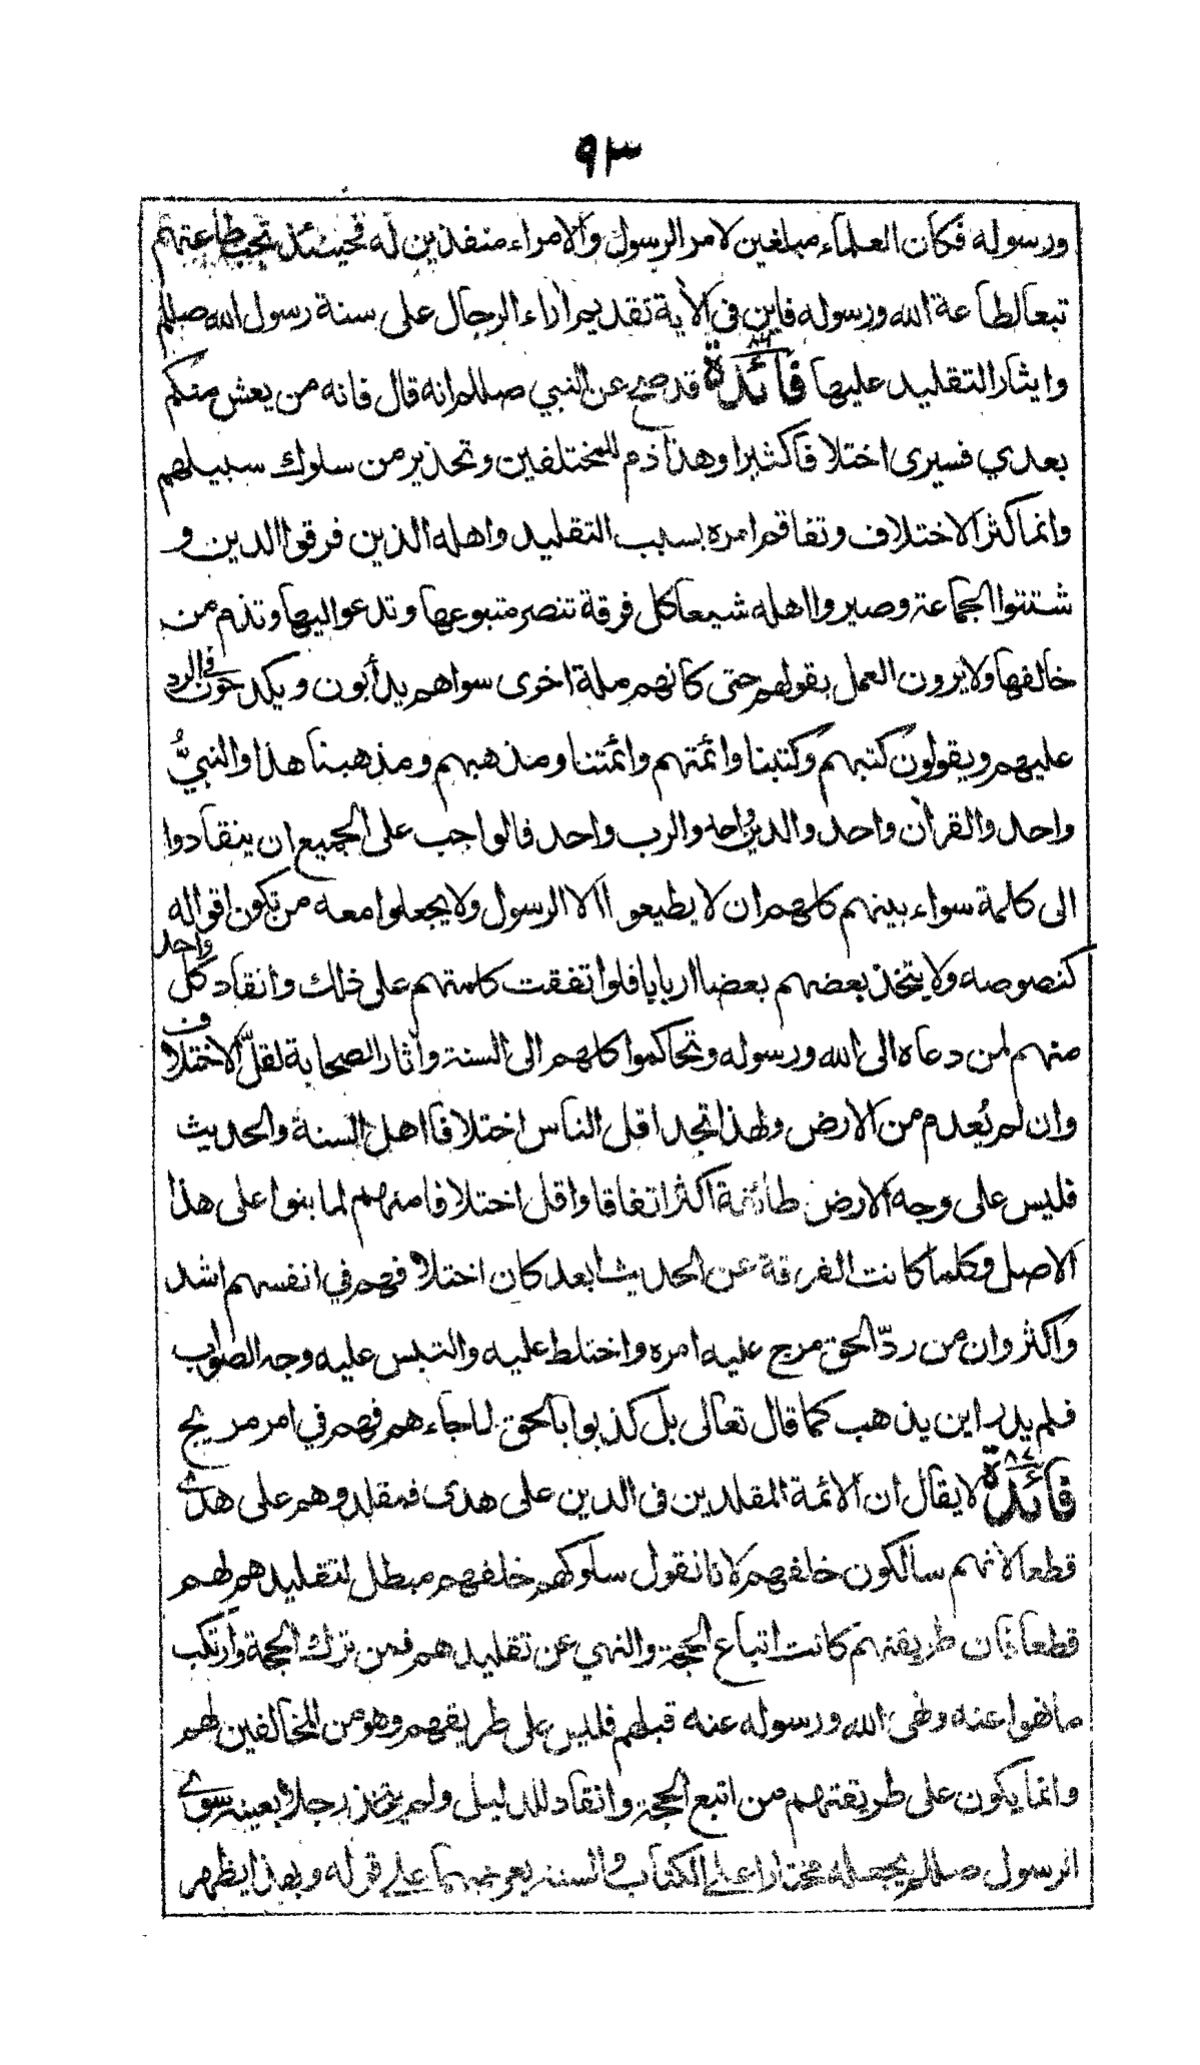 ٩٣
ورسوله فكان العلماء مبلغين لامر الرسول والامراء منفذين له فحينئذ تجب طاعتهم
تبعا لطاعة الله ورسوله فاين فى الآية تقديم آراء الرجال على سنة رسول الله صللم
وايثار التقليد عليها فائدة ٨٣ قد صح عن النبي صللم انه قال فانه من يعش منكم
بعدي فسيرى اختلافا كثيرا وهذا ذم للمختلفين وتحذير من سلوك سبيلهم
وانما كثر الاختلاف وتفاقم امره بسبب التقليد واهله الذين فرقوا الدين و
شتتوا الجماعة وصيروا اهله شيعا كل فرقة تنصر متبوعها وتدعو اليها وتذم من
خالفها ولا يرون العمل بقولهم حتى كانهم ملة اخرى سواهم يدأبون ويكدحون فى الرد
عليهم ويقولون كتبهم وكتبنا وائمتهم وائمتنا ومذهبهم ومذهبنا هذا والنبيُّ
واحد والقرآن واحد والدين واحد والرب واحد فالواجب على الجميع ان ينقادوا
الى كلمة سواء بينهم كلهم ان لا يطيعوا الا الرسول ولا يجعلوا معه من تكون اقواله
كنصوصه ولا يتخذ بعضهم بعضا اربابا فلو اتفقت كلمتهم على ذلك وانقاد كل واحد
منهم لمن دعاه الى الله ورسوله وتحاكموا كلهم الى السنة وآثار الصحابة لقلّ الاختلاف
وان لم يُعدم من الارض ولهذا تجد اقل الناس اختلافا اهل السنة والحديث
فليس على وجه الارض طائفة اكثر اتفاقا واقل اختلافا منهم لما بنوا على هذا
الاصل وكلما كانت الفرقة عن الحديث ابعد كان اختلافهم في انفسهم اشد
واكثر وان من ردّ الحق مرج عليه امره واختلط عليه والتبس عليه وجه الصواب
فلم يدر اين يذهب كما قال تعالى بل كذبوا بالحق لما جاءهم فهم في امر مريج
فائدة ٨٤ لا يقال ان الائمة المقلدين فى الدين على هدى فمقلدوهم على هدى
قطعا لانهم سالكون خلفهم لانا نقول سلوكهم خلفهم مبطل لتقليدهم لهم
قطعا فان طريقتهم كانت اتباع الحجة والنهي عن تقليدهم فمن ترك الحجة وارتكب
ما نهوا عنه ونهى الله ورسوله عنه قبلهم فليس على طريقهم وهو من المخالفين لهم
وانما يكون على طريقتهم من اتبع الحجة وانقاد للدليل ولم يتخذ رجلا بعينه سوى
الرسول صللم يجعله مختارا على الكتاب والسنة يعرضهما على قوله وبهذا يظهر